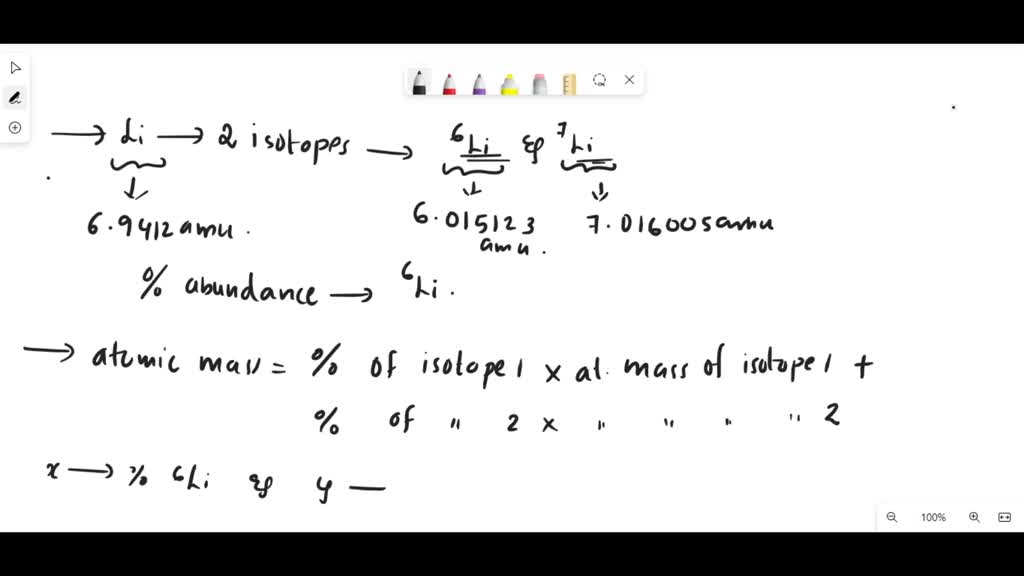 → Li → 2 isotopes → ⁶Li & ⁷Li
6.9412 amu. 6.015123 amu. 7.016005 amu
% abundance → ⁶Li.
→ atomic mass = % of isotope 1 × at. mass of isotope 1 +
% of " 2 × " " " " 2
x → % ⁶Li & y —
100%